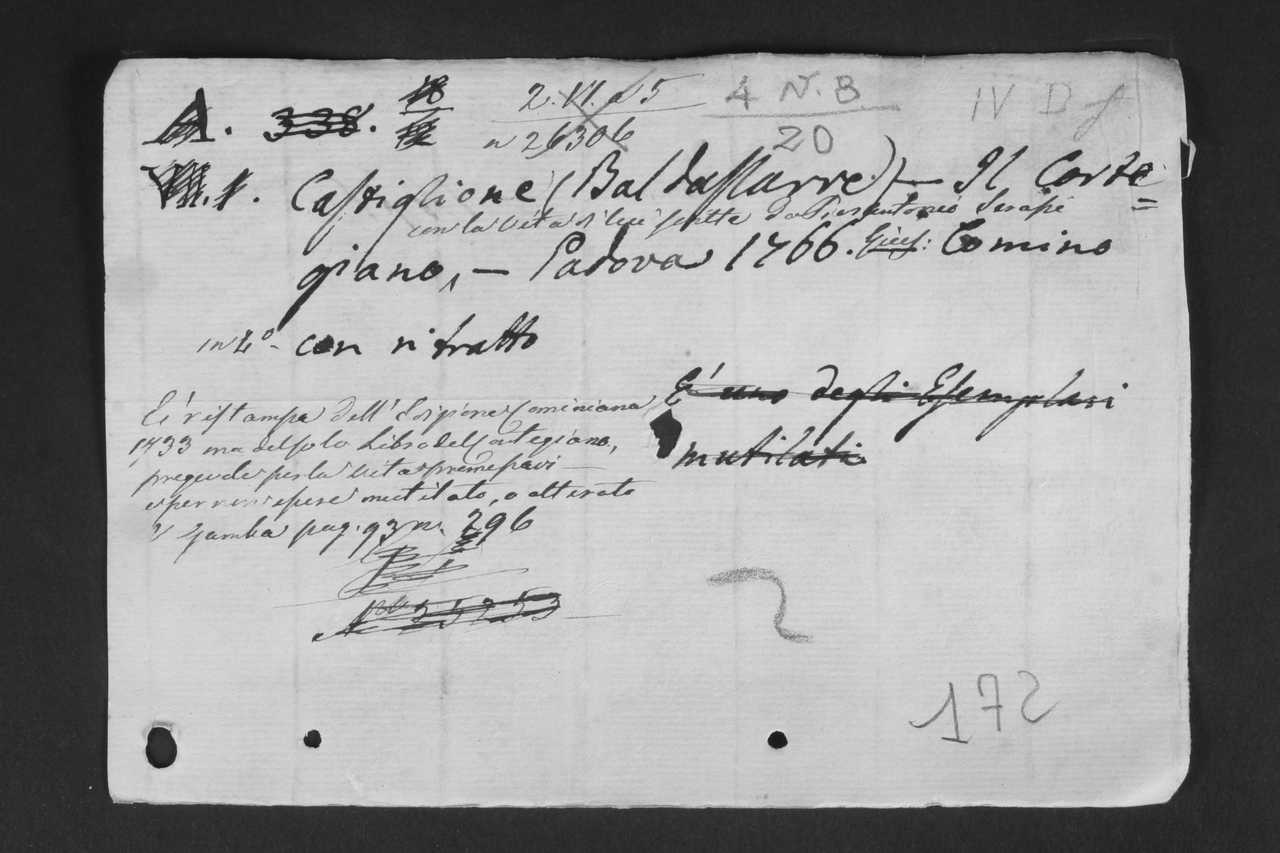 A. 338. 18 2.VI.25 4 N.B. IV D f
12 n 26306 20
VIII.1. Castiglione (Baldassarre) — Il Corte=
con la vita di lui scritta da Pierantonio Serassi
giano, — Padova 1766. Gius: Comino
in 4.o con ritratto
E' ristampa dell'Edizione Cominiana
1733 ma del solo Libro del Cortegiano,
pregevole per la vita
e per non essere mutilato, o alterato
V Gamba pag. 93 n. 296
E' uno degli Esemplari
mutilati
172